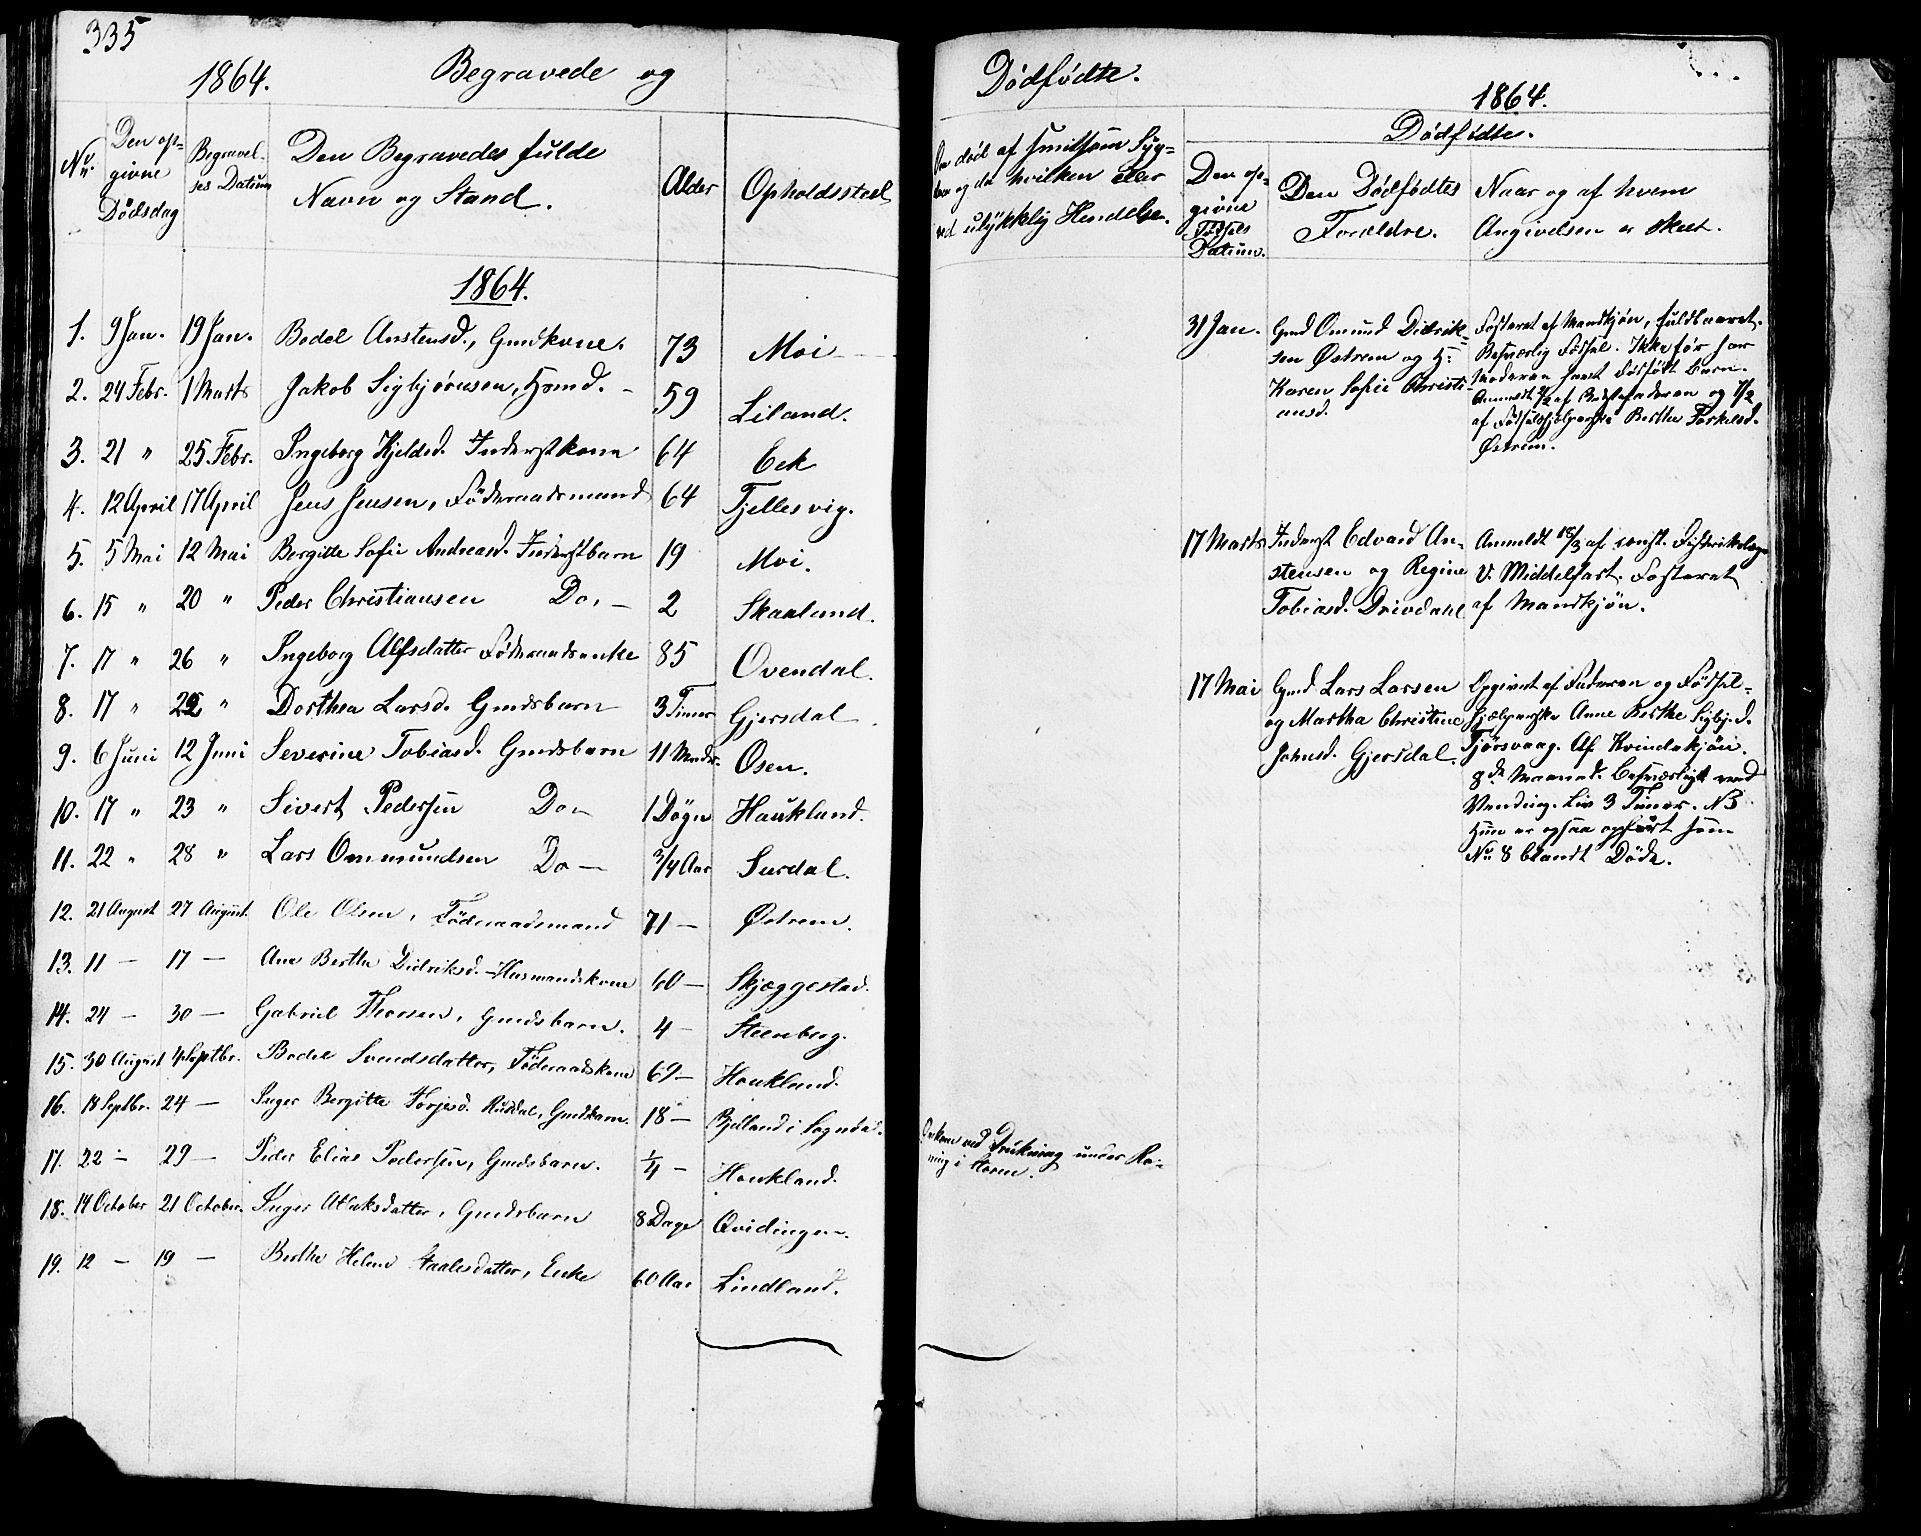 335
1864. Begravede og
No. Den op=
givne
Dödsdag
Begravel-
ses Datum
Den Begravedes fulde
Navn og Stand.
Alder
Opholdssted
1864.
1. 9 Jan. 19 Jan. Bodel Anstensd., Gmdkone. 73 Moi
2. 24 Febr. 1 Marts Jakob Sigbjørnsen, Hsmd. 59 Liland.
3. 21 " 25 Febr. Ingeborg Kjeldsd. Inderstkone 64 Eek
4. 12 April 17 April Jens Jensen, Föderaadsmand 64 Tjellesvig.
5. 5 Mai 12 Mai Bergitte Sofie Andreasd. Inderstbarn 19 Moi.
6. 15 " 20 " Peder Christiansen Do. — 2 Skaalund.
7. 17 " 26 " Ingeborg Alfsdatter Föderaadsenke 85 Ovendal.
8. 17 " 22 " Dorthea Larsd. Gmdsbarn 3 Timer Gjersdal.
9. 6 Juni 12 Juni Severine Tobiasd. Gmdsbarn 11 Mndr. Osen.
10. 17 " 23 " Sivert Pedersen Do— 1 Døgn Haukland.
11. 22 " 28 " Lars Ommundsen Do — 3/4 Aar Surdal.
12. 21 August 27 August. Ole Olsen, Föderaadsmand 71 — Østrem.
13. 11 — 17 — Ane Berthe Didriksd. Husmandskone 60 — Skjæggestad.
14. 24 — 30 — Gabriel Thorsen, Gmdsbarn. 4 — Steenberg.
15. 30 August 4 Septbr. Bodel Svendsdatter, Föderaadskone 69 — Haukland.
16. 18 Septbr. 24 — Inger Bergitte Torjesd. Rusdal, Gmdsbarn. 18 — Bjelland i Sogndal.
17. 22 — 29 — Peder Elias Pedersen, Gmdsbarn. 1/4 — Haukland.
18. 14 October 21 October. Inger Aslaksdatter, Gmdsbarn 8 Dage Qvidingen.
19. 12 — 19 — Berthe Helene Staalesdatter, Enke 60 Aar Lindland.
Dödfödte.
1864.
Om död af smitsom Syg=
dom og da hvilken eller
ved ulykkelig Hendelse.
Dødfødte.
Den op=
givne
Fødsels
Datum.
Den Dödfödtes
Forældre.
Naar og af hvem
Angivelsen er skeet.
Omkom ved Drukning under Ro-
ning i Aaen.
31 Jan. Gmd Omund Didrik-
sen Østrem og H:
Karen Sofie Christi-
ansd.
Fosteret af Mandkjøn, fuldbaaret.
Besværlig Födsel. Ikke før har
Moderen havt dödfödt Barn.
Anmeldt af Bedstefaderen og 7/2
af Fødselshjælperske Berthe Torkelsd.
Østrem.
17 Marts Inderst Edvard An-
stensen og Regine
Tobiasd. Drivdahl
Anmeldt 18/3 af const. Distriktslæge
V. Middelfart. Fosteret
af Mandkjön.
17 Mai Gmd Lars Larsen
og Martha Christine
Johnsd. Gjersdal.
Opgivet af Faderen og Födsel-
hjælperske Anne Berthe Sigbj.d.
Tjörsvaag. Af Kvindekjön.
8de Maaned. Besværligt med
Vending. Liv 3 Timer. NB
Hun er ogsaa opfört som
No 8 blandt Döde.